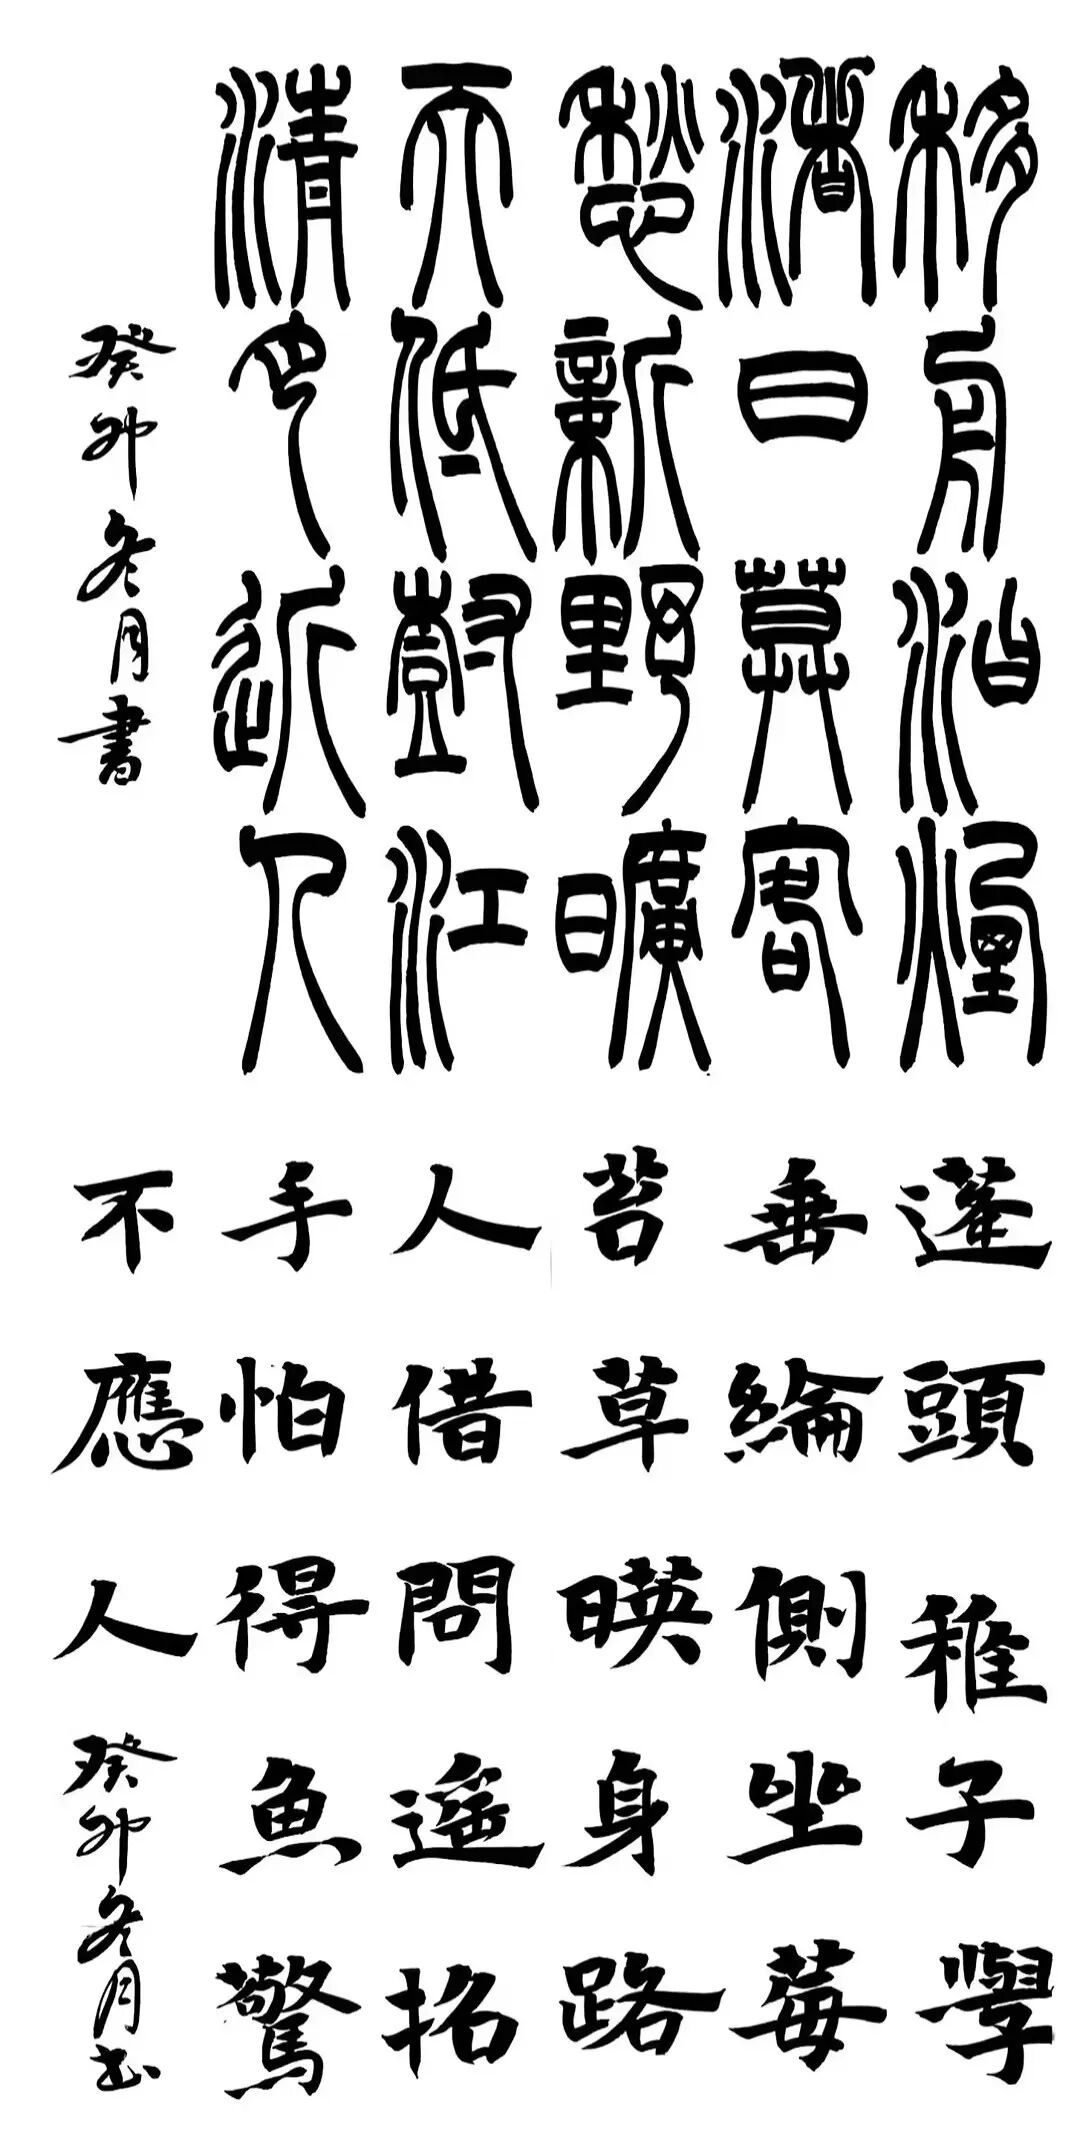 移舟泊煙
渚日暮客
愁新野曠
天低樹江
清月近人
癸卯冬月書
蓬頭稚子學
垂綸側坐莓
苔草暎身路
人借問遙招
手怕得魚驚
不應人
癸卯冬月书